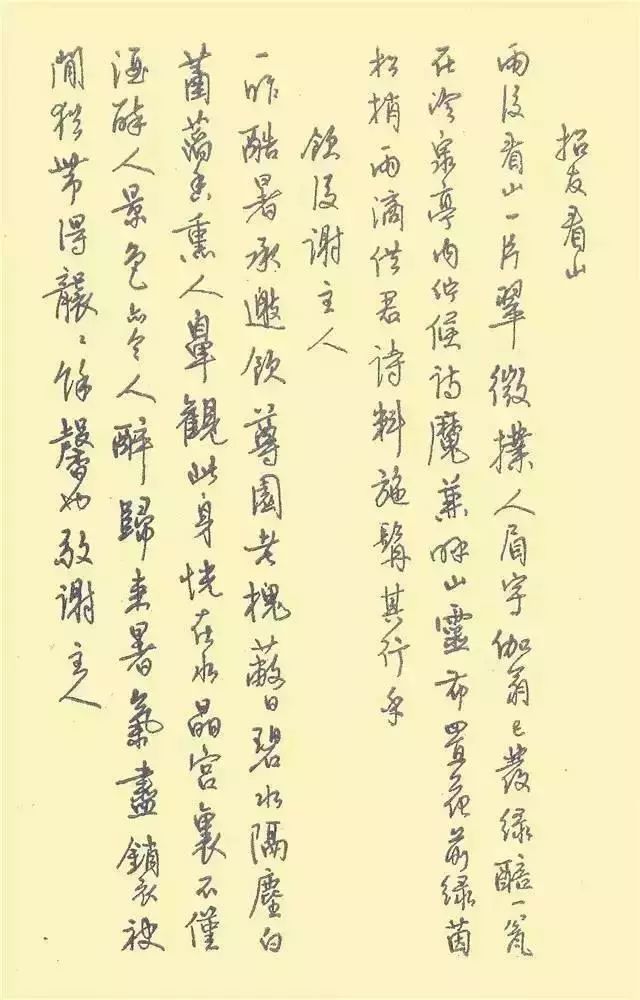 招友看山
雨後看山一片翠微撲人眉宇伽翁已發綠醅一瓮
在冷泉亭内佇候詩魔兼呼山靈布置花前綠茵
松梢雨滴供君詩料施髯其行乎
飲後謝主人
一昨酷暑承邀飲尊園老槐蔽日碧水隔塵白
菡萏香熏人鼻觀此身恍在水晶宫裏不僅
酒醉人景色亦令人醉歸来暑氣盡銷衣袂
間猶带得襲々餘馨也敬謝主人